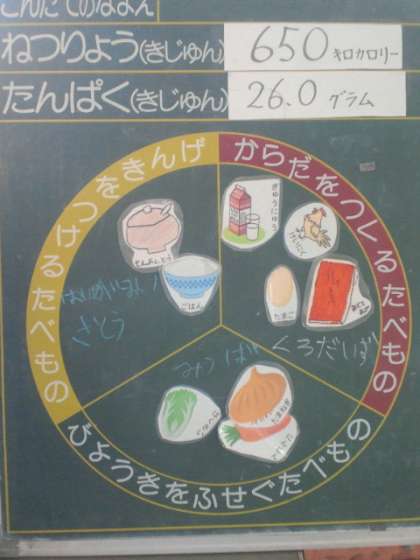 こんだてのなまえ
ねつりょう(きじゅん) 650 キロカロリー
たんぱく(きじゅん) 26.0 グラム
げんきをつけるたべもの
からだをつくるたべもの
びょうきをふせぐたべもの
ぎゅうにゅう
けいにく
でんぷんとう
ごはん
たまご
さとう
くろだいず
みつば
たまねぎ
にんじん